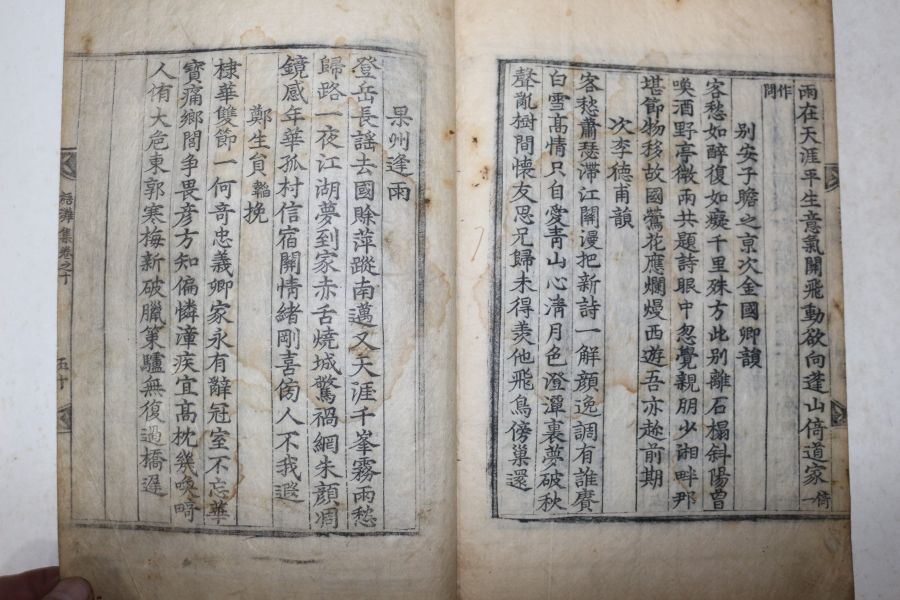 雨在天涯平生意氣關飛動欲向蓬山倚道家一倚
作問
別安子瞻之京次金國卿韻
客愁如醉復如癡千里殊方此別離石榻斜陽曾
喚酒野亭微雨共題詩眼中忽覺親朋少湖畔那
堪節物移故國鶯花應爛熳西遊吾亦趂前期
次李德甫韻
客愁蕭瑟滯江關漫把新詩一解顔逸調有誰賡
白雪高情只自愛靑山心淸月色澄潭裏夢破秋
聲亂樹間懷友思兄歸未得羡他飛鳥傍巢還
果州逢雨
登岳長謠去國賒萍蹤南邁又天涯千峯霧雨愁
歸路一夜江湖夢到家赤舌燒城驚禍網朱顔凋
鏡感年華孤村信宿關情緖剛喜傍人不我遐
鄭生貟挽
棣華雙節一何奇忠義卿家永有辭冠室不忘華
寶痛鄕閭爭畏彦方知偏憐漳疾宜高枕幾喚
人侑大危東郭寒梅新破臘策驢無復過橋遲
集卷之十
五十